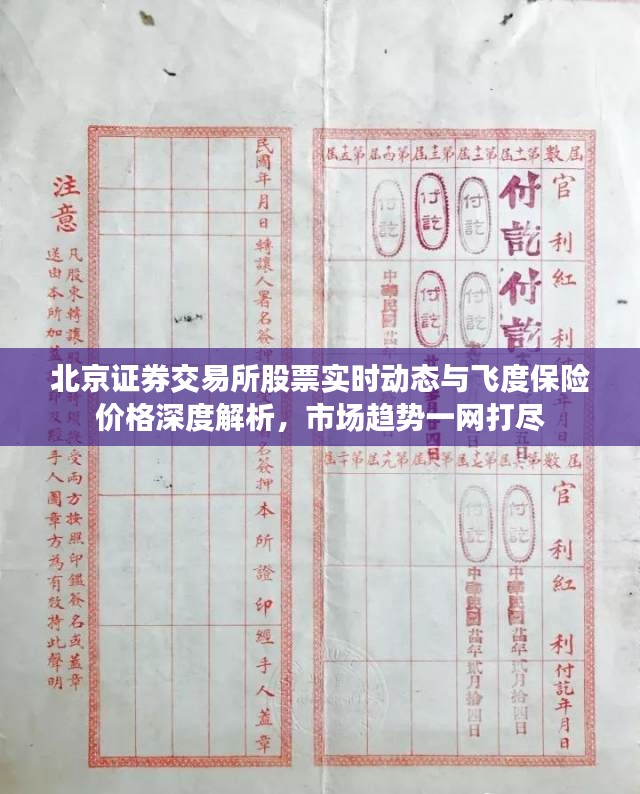 北京证券交易所股票实时动态与飞度保险
价格深度解析，市场趋势一网打尽
屆數
第十一屆
第十二屆
第十三屆
第十四屆
第十五屆
官利
紅利
付訖
付訖
付訖
付訖
付訖
付訖
付訖
中華民國
屆數
第十六屆
第十七屆
第十八屆
第十九屆
第二十屆
官利
紅利
付訖年月日
付訖
中華民國廿年貳月拾四日
付訖
中華民國廿年貳月拾四日
民國年月日
轉讓人署名簽押
名簽押
本所證印
經手人蓋章
注意
凡股東轉讓股
受兩方按照印鑑簽名或蓋章
送由本所加蓋
印及經手人圖章方為有效特此聲明